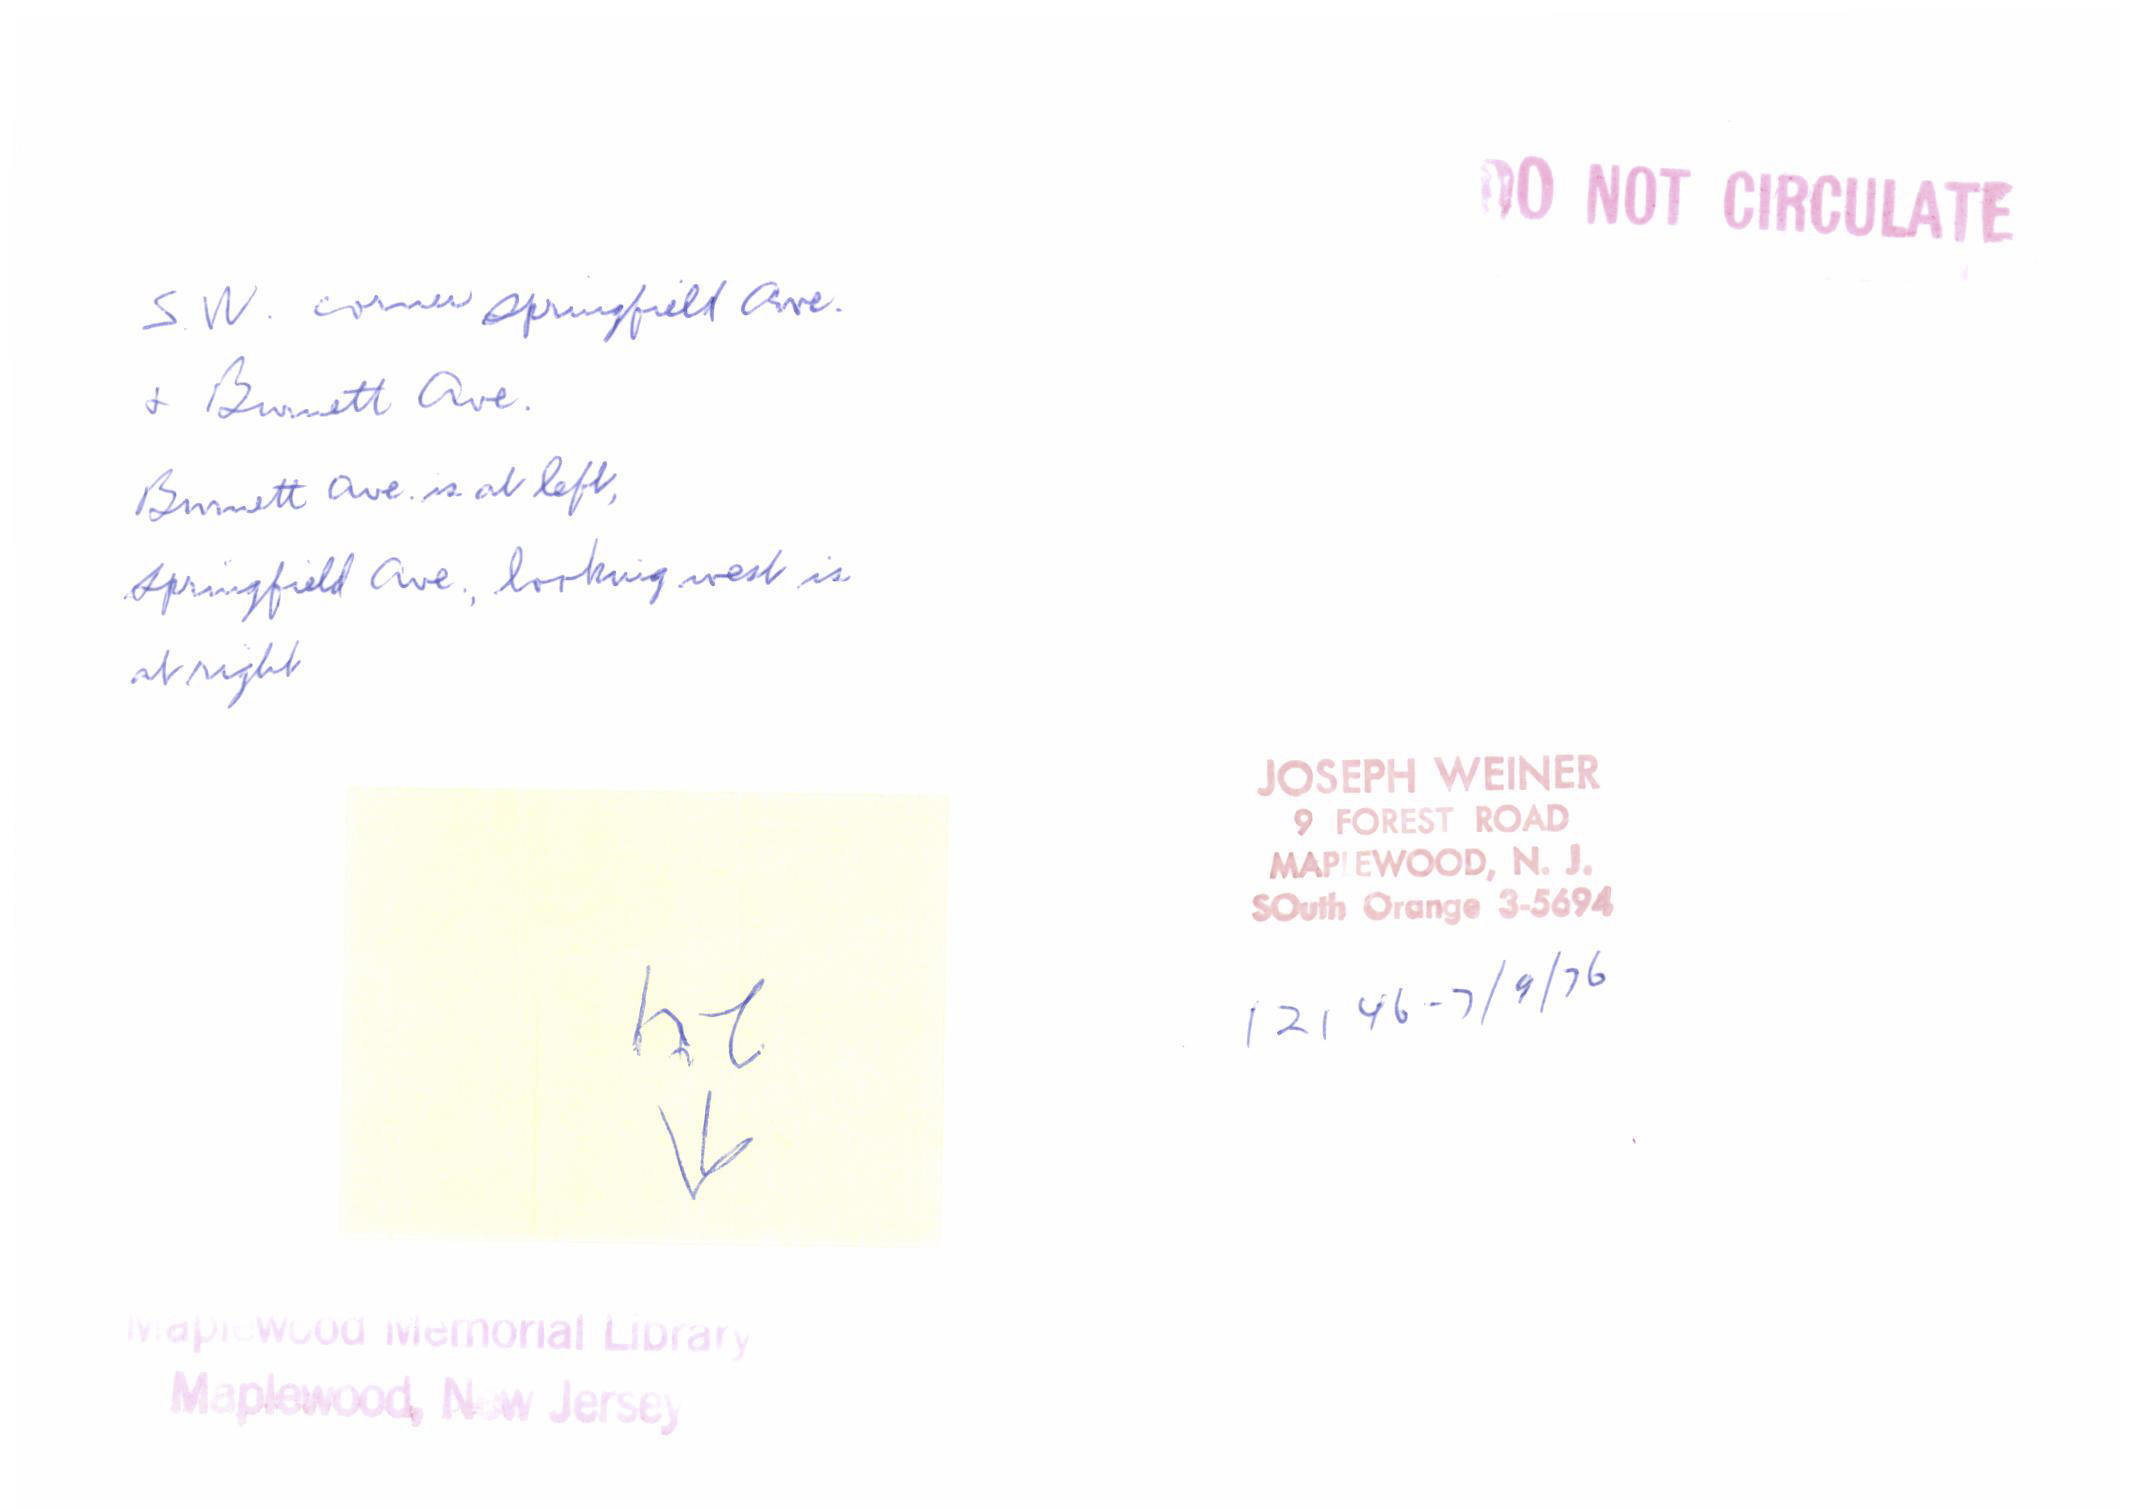 DO NOT CIRCULATE
S.W. corner Springfield Ave.
+ Burnett Ave.
Burnett Ave. is at left,
Springfield Ave., looking west is
at right
JOSEPH WEINER
9 FOREST ROAD
MAPLEWOOD, N. J.
SOuth Orange 3-5694
12146-7/9/76
Maplewood Memorial Library
Maplewood, New Jersey